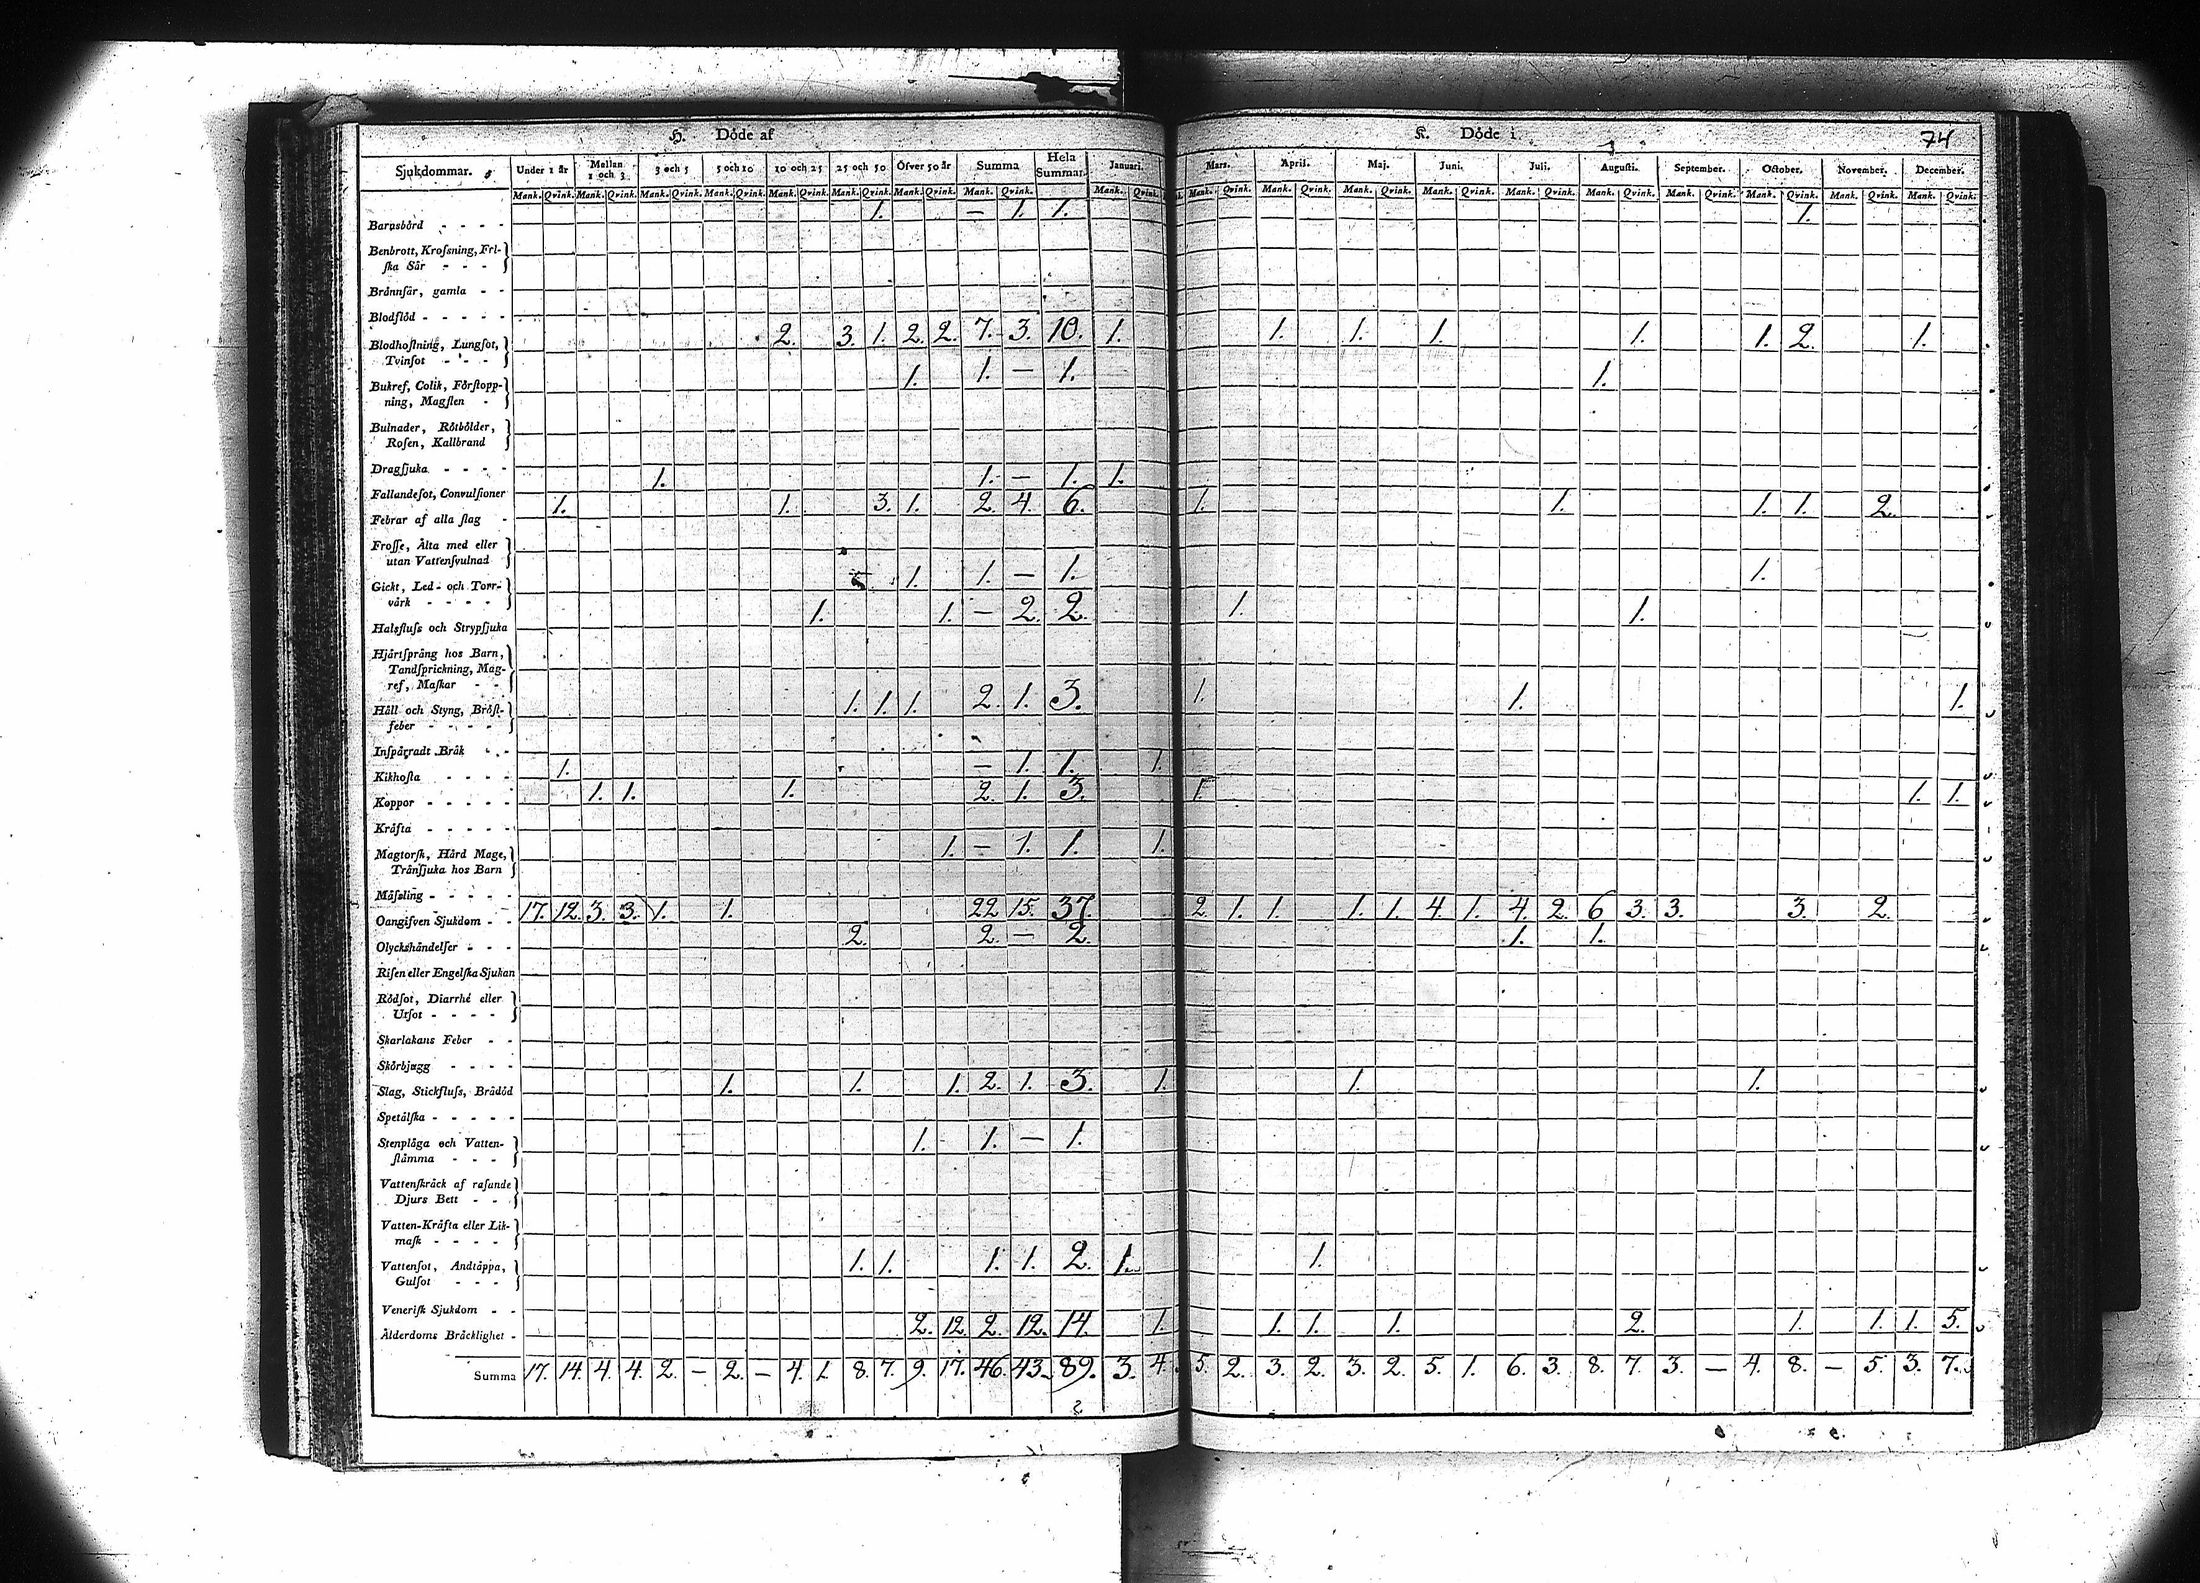 H. Döde af
K. Döde i
74
Sjukdommar. Under 1 år Mellan 1 och 3 3 och 5 5 och 10 10 och 25 25 och 50 Öfver 50 år Summa Hela Summar. Januari. Mars. April. Maj. Juni. Juli. Augusti. September. October. November. December.
Mank. Qvink. Mank. Qvink. Mank. Qvink. Mank. Qvink. Mank. Qvink. Mank. Qvink. Mank. Qvink. Mank. Qvink. Mank. Qvink. Mank. Qvink. Mank. Qvink. Mank. Qvink. Mank. Qvink. Mank. Qvink. Mank. Qvink. Mank. Qvink. Mank. Qvink. Mank. Qvink. Mank. Qvink.
Barnsbörd - - - - 1. — 1. 1. 1.
Benbrott, Krosning, Fri-
ska Sår - - -
Brännsår, gamla - -
Blodflöd - - - - -
Blodhostning, Lungsot, 2. 3. 1. 2. 2. 7. 3. 10. 1. 1. 1. 1. 1. 1. 2. 1.
Tvinsot - - -
Bukref, Colik, Förstopp- 1. 1. — 1. 1.
ning, Magsten -
Bulnader, Rötbölder,
Rosen, Kallbrand
Dragsjuka - - - -
Fallandesot, Convulsioner 1. 1. — 1. 1.
Febrar af alla slag - 1. 1. 3. 1. 2. 4. 6. 1. 1. 1. 1. 2.
Frosse, Älta med eller
utan Vattensvulnad
Gickt, Led- och Torr- 1. 1. — 1. 1.
värk - - - -
Halsfluss och Strypsjuka 1. 1. — 2. 2. 1. 1.
Hjärtsprång hos Barn,
Tandsprickning, Mag-
ref, Maskar - -
Håll och Styng, Bröst- 1. 1. 1. 2. 1. 3. 1. 1. 1.
feber - - - -
Inspärradt Bråk - -
Kikhosta - - - - 1. — 1. 1. 1.
Koppor - - - - - 1. 1. 1. 2. 1. 3. 1. 1. 1.
Kräfta - - - - -
Magtorsk, Hård Mage, 1. — 1. 1. 1.
Trånsjuka hos Barn
Mässling - - - - -
Oangifven Sjukdom - - 17. 12. 3. 3. 1. 1. 22 15. 37. 2. 1. 1. 1. 1. 4. 1. 4. 2. 6 3. 3. 3. 2.
Olyckshändelser - - - 2. 2. — 2. 1. 1.
Risen eller Engelska Sjukan
Rödsot, Diarrhé eller
Utsot - - - -
Skarlakans Feber - -
Skörbjugg - - - -
Slag, Stickfluss, Brådöd 1. 1. 1. 2. 1. 3. 1. 1. 1.
Spetälska - - - - -
Stenplåga och Vatten- 1. 1. — 1.
stämma - - -
Vattenskräck af rasande
Djurs Bett - -
Vatten-Kräfta eller Lik-
mask - - - -
Vattensot, Andtäppa, 1. 1. 1. 1. 2. 1. 1.
Gulsot - - -
Venerisk Sjukdom - -
Ålderdoms Bräcklighet - 2. 12. 2. 12. 14. 1. 1. 1. 1. 2. 1. 1. 1. 5.
Summa 17. 14. 4. 4. 2. — 2. — 4. 1. 8. 7. 9. 17. 46. 43. 89. 3. 4. 5. 2. 3. 2. 3. 2. 5. 1. 6. 3. 8. 7. 3. — 4. 8. — 5. 3. 7.